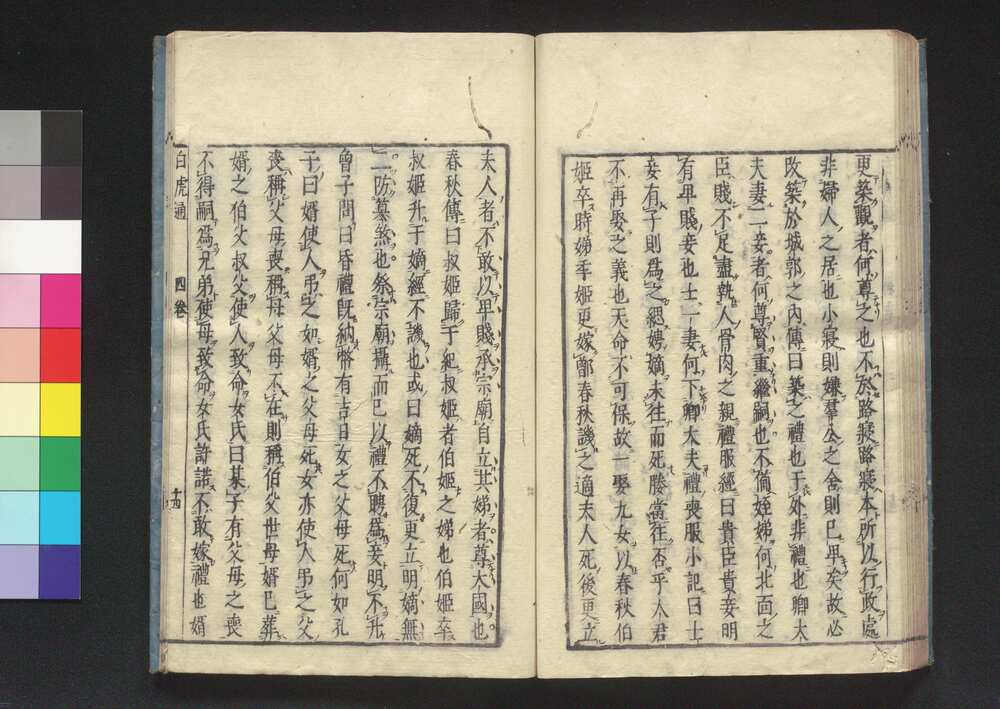 更築觀者何尊之也不於路寢路寢本所以行政處
非婦人之居也小寢則嫌羣公之舍則已卑矣故必
改築於城郭之內傳曰築之禮也于外非禮也卿大
夫妻二妾者何尊賢重繼嗣也不備姪娣何北面之
臣賤不足盡執人骨肉之親禮服經曰貴臣貴妾明
有卑賤妾也士一妻何下卿大夫禮喪服小記曰士
妾有子則爲之緦娉嫡未往而死媵當往否乎人君
不再娶之義也天命不可保故一娶九女以春秋伯
姬卒時娣季姬更嫁鄫春秋譏之適夫人死後更立
夫人者不敢以卑賤承宗廟自立其娣者尊大國也
春秋傳曰叔姬歸于紀叔姬者伯姬之娣也伯姬卒
叔姬升于嫡經不譏也或曰嫡死不復更立明嫡無
二防篡煞也祭宗廟攝而已以禮不聘爲妾明不升
曾子問曰昏禮既納幣有吉日女之父母死何如孔
子曰婿使人弔之如婿之父母死女亦使人弔之父
喪稱父母喪稱母父母不在則稱伯父世母婿已葬
婿之伯父叔父使人致命女氏曰某子有父母之喪
不得嗣爲兄弟使母致命女氏許諾不敢嫁禮也婿
白虎通 四卷 十四